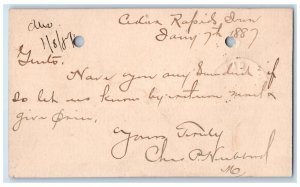 Cedar Rapids, Iowa
Jany 7th 1887
Gents.
Have you any if
so let us know by return mail &
give Price.
Yours Truly
Chas. P. Hubbard